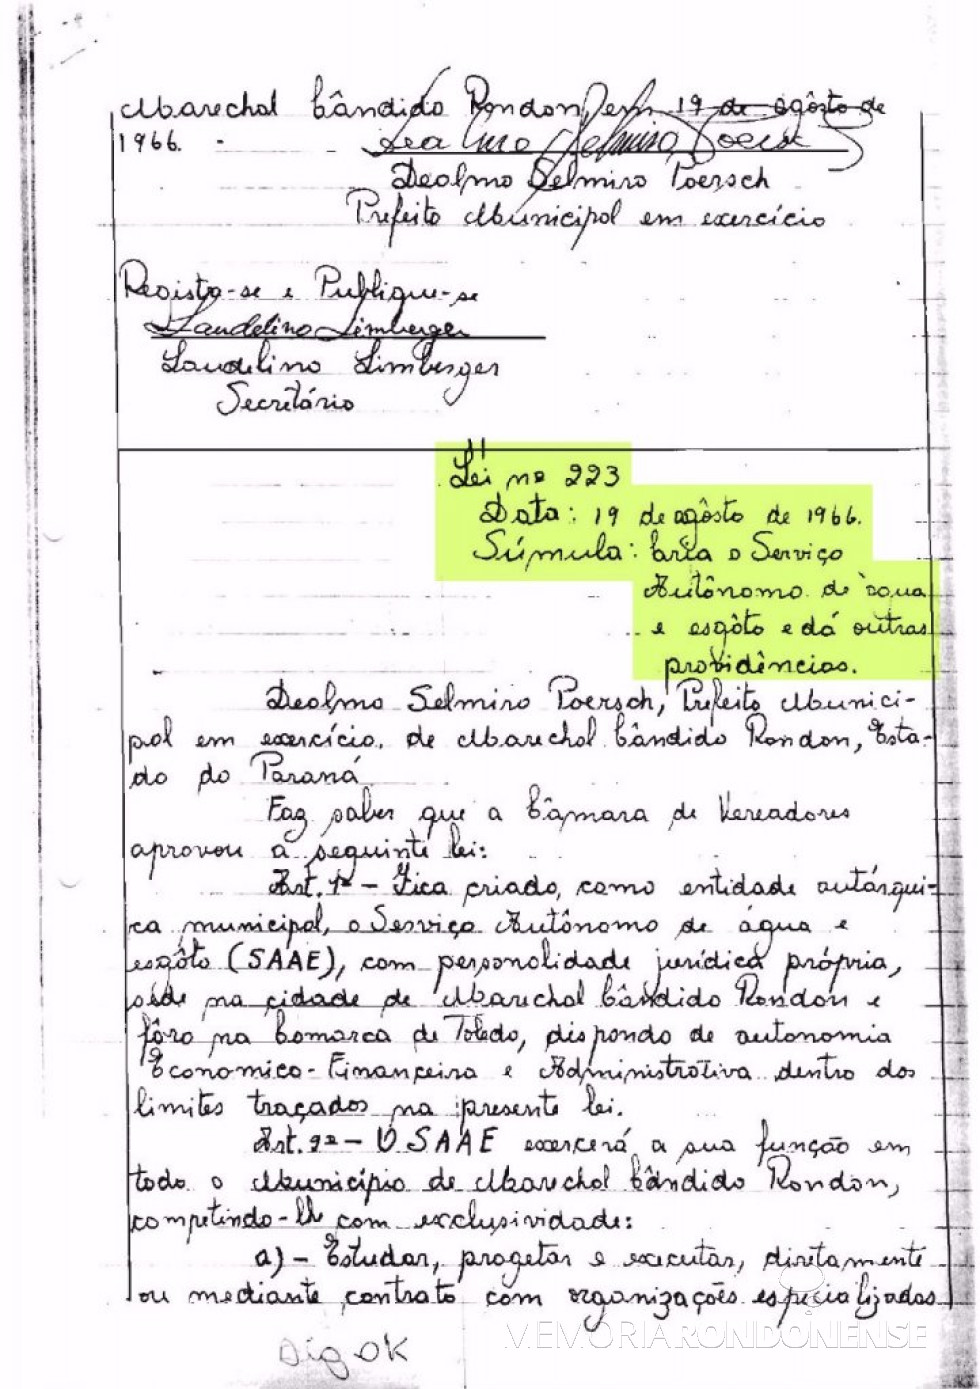 Marechal Cândido Rondon, em 19 de agôsto de
1966.
Dealmo Selmiro Poersch
Dealmo Selmiro Poersch
Prefeito Municipal em exercício
Registre-se e Publique-se
Laudelino Limberger
Laudelino Limberger
Secretário
Lei nº 223
Data: 19 de agôsto de 1966.
Súmula: Cria o Serviço
Autônomo de água
e esgôto e dá outras
providências.
Dealmo Selmiro Poersch, Prefeito Munici-
pal em exercício, de Marechal Cândido Rondon, Esta-
do do Paraná
Faz saber que a Câmara de Vereadores
aprovou a seguinte lei:
Art. 1º - Fica criado, como entidade autárqui-
ca municipal, o Serviço Autônomo de água e
esgôto (SAAE), com personalidade jurídica própria,
séde na cidade de Marechal Cândido Rondon e
fôro na Comarca de Toledo, dispondo de autonomia
Economico-Financeira e Administrativa dentro dos
limites traçados na presente lei.
Art. 2º - O SAAE exercerá a sua função em
todo o Município de Marechal Cândido Rondon,
competindo-lhe com exclusividade:
a) - Estudar, progetar e executar, diretamente
ou mediante contrato com organizações especializadas
Dig OK
MEMÓRIARONDONENSE